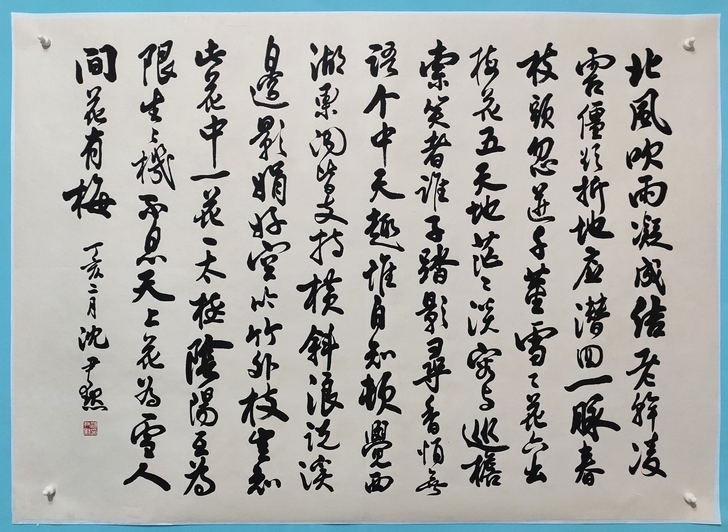 北風吹雨凝成结老幹凌
雲僵欲折地底潜回一脉春
枝頭忽迸千萼雪〻花六出
梅花五天地茫〻淡寄与巡檐
索笑者誰子踏影尋香悄無
語个中天趣惟自知頓覺西
湖累濁皆支持横斜浪説溪
邊影娟好空吟竹外枝生知
此花中一花一太極陰陽互為
限生〻機不息天上花為雪人
間花有梅
丁亥二月沈尹默